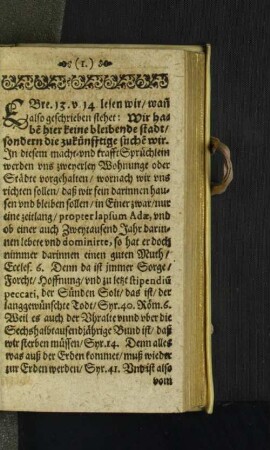 (1.)
EBre. 13. v. 14 lesen wir/ wañ
also geschrieben stehet: Wir ha-
bē hier keine bleibende stadt/
sondern die zukünfftige suchē wir.
In diesem macht- vnd krafft Sprüchlein
werden vns zweyerley Wohnunge oder
Städte vorgehalten/ wornach wir vns
richten sollen/ daß wir sein darinnen hau-
sen vnd bleiben sollen/ in Einer zwar/ nur
eine zeitlang/ propter lapsum Adæ, vnd
ob einer auch Zweytausend Jahr darin-
nen lebete vnd dominire, so hat er doch
nimmer darinnen einen guten Muth/
Eccles. 6. Denn da ist jmmer Sorge/
Forcht/ Hoffnung/ vnd zu letzt stipendiū
peccati, der Sünden Solt/ das ist/ der
langgewünschte Todt/ Syr. 40. Röm. 6.
Weil es auch der Vhralte vnnd vber die
Sechshalbtausendjährige Bund ist/ daß
wir sterben müssen/ Syr. 14. Denn alles
was auß der Erden kommet/ muß wieder
zur Erden werden/ Syr. 41. Vnd ist also
vom